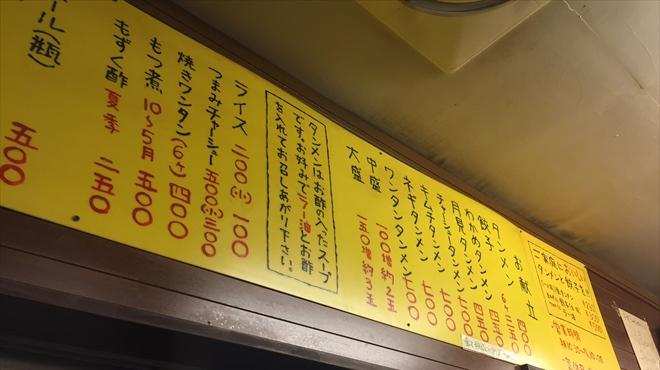 お献立
タンメン 四〇〇
餃子 6ヶ 三五〇
わかめタンメン 四五〇
月見タンメン 四五〇
チャーシュータンメン 七〇〇
キムチタンメン 七〇〇
ネギタンメン 七〇〇
ワンタンタンメン 七〇〇
中盛 一〇〇増 約2玉
大盛 一五〇増 約3玉
タンメンはお酢の入ったスープ
です。お好みでラー油とお酢
お入れてお召しあがり下さい。
ライス 二〇〇(小)一〇〇
つまみチャーシー 五〇〇(小)三〇〇
焼きワンタン(6ヶ) 四〇〇
もつ煮 10〜5月 五〇〇
もずく酢 夏季 二五〇
ール(瓶) 五〇〇
営業時間